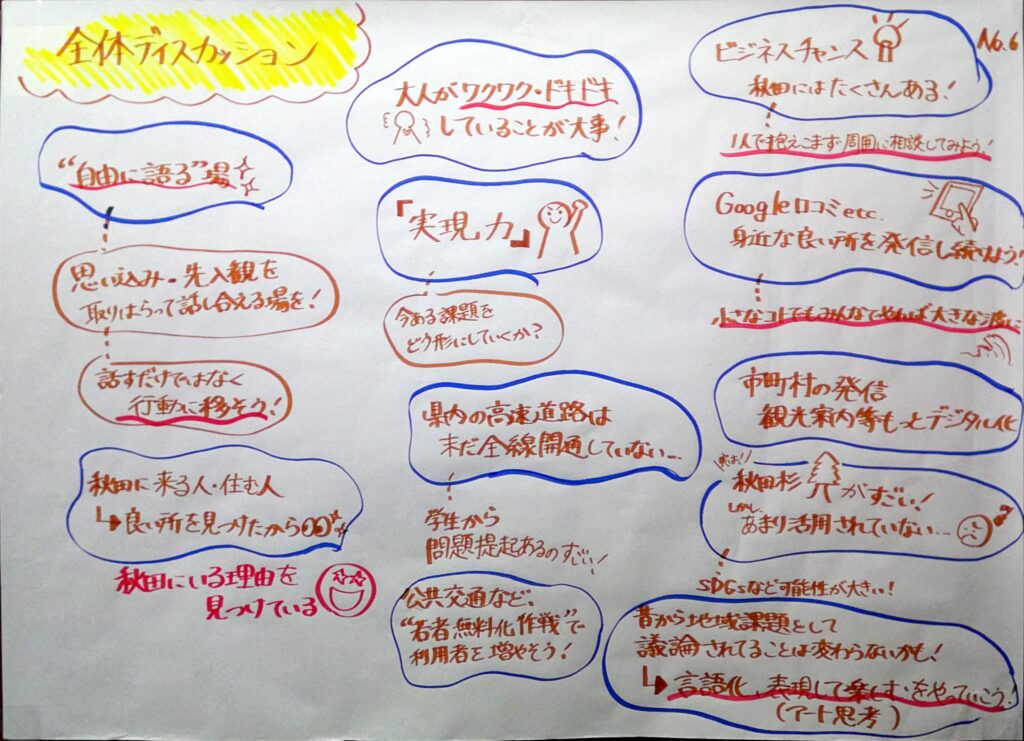 全体ディスカッション
"自由に語る"場
思い込み・先入観を
取りはらって話し合える場を!
話すだけではなく
行動に移そう!
秋田に来る人・住む人
良い所を見つけたから
秋田にいる理由を
見つけている
大人がワクワク・ドキドキ
していることが大事!
『実現力』
今ある課題を
どう形にしていくか?
県内の高速道路は
まだ全線開通していない…
学生から
問題提起あるのすごい!
公共交通など、
"若者無料化作戦"で
利用者を増やそう!
No.6
ビジネスチャンス
秋田にはたくさんある!
1人で抱えこまず周囲に相談してみよう!
Google口コミetc.
身近な良い所を発信し続けよう!
小さなコトでもみんなでやれば大きな波に
市町村の発信
観光案内等もっとデジタル化
実は!!
秋田杉がすごい!
しかし、
あまり活用されていない…
SDGsなど可能性が大きい!
昔から地域課題として
議論されてることは変わらないかも!
言語化、表現して楽しむをやっていこう!
(アート思考)